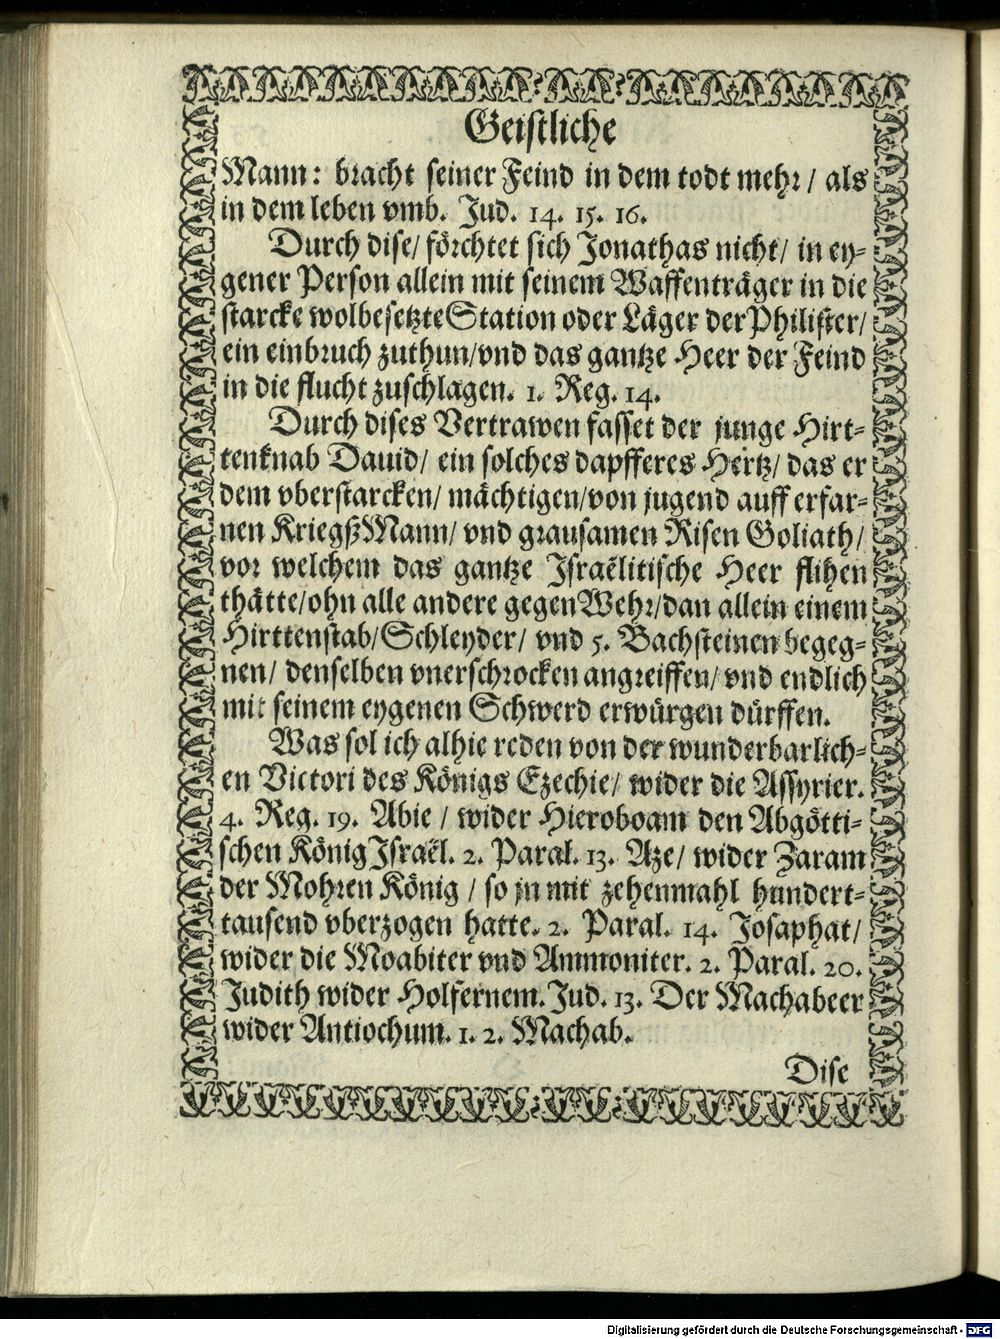 Geistliche
Mann: bracht seiner Feind in dem todt mehr / als
in dem leben vmb. Jud. 14. 15. 16.
Durch dise/ förchtet sich Jonathas nicht/ in ey-
gener Person allein mit seinem Waffenträger in die
starcke wolbesetzte Station oder Läger der Philister/
ein einbruch zuthun/vnd das gantze Heer der Feind
in die flucht zuschlagen. 1. Reg. 14.
Durch dises Vertrawen fasset der junge Hirt-
tenknab Dauid/ ein solches dapfferes Hertz/ das er
dem vberstarcken/ mächtigen/von jugend auff erfar-
nen KriegßMann/ vnd grausamen Risen Goliath/
vor welchem das gantze Israëlitische Heer flihen
thätte/ohn alle andere gegenWehr/dan allein einem
Hirttenstab/Schleyder/ vnd 5. Bachsteinen begeg-
nen/ denselben vnerschrocken angreiffen/ vnd endlich
mit seinem eygenen Schwerd erwürgen dürffen.
Was sol ich alhie reden von der wunderbarlich-
en Victori des Königs Ezechie/ wider die Assyrier.
4. Reg. 19. Abie / wider Hieroboam den Abgötti-
schen König Israël. 2. Paral. 13. Aze/ wider Zaram
der Mohren König / so jn mit zehenmahl hundert-
tausend vberzogen hatte. 2. Paral. 14. Josaphat/
wider die Moabiter vnd Ammoniter. 2. Paral. 20.
Judith wider Holfernem. Jud. 13. Der Machabeer
wider Antiochum. 1. 2. Machab.
Dise
Digitalisierung gefördert durch die Deutsche Forschungsgemeinschaft - DFG